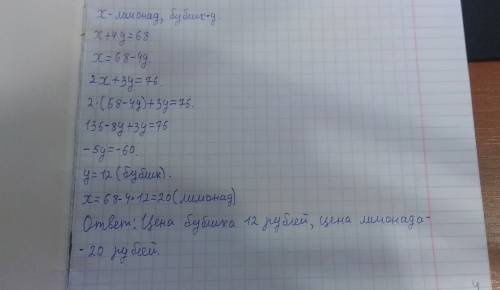 x-лимонад, бублик-y.
x+4y=68
x=68-4y
2x+3y=76.
2·(68-4y)+3y=76.
136-8y+3y=76
-5y=-60.
y=12 (бублик).
x=68-4·12=20 (лимонад)
Ответ: Цена бублика 12 рублей, цена лимонада-
-20 рублей.